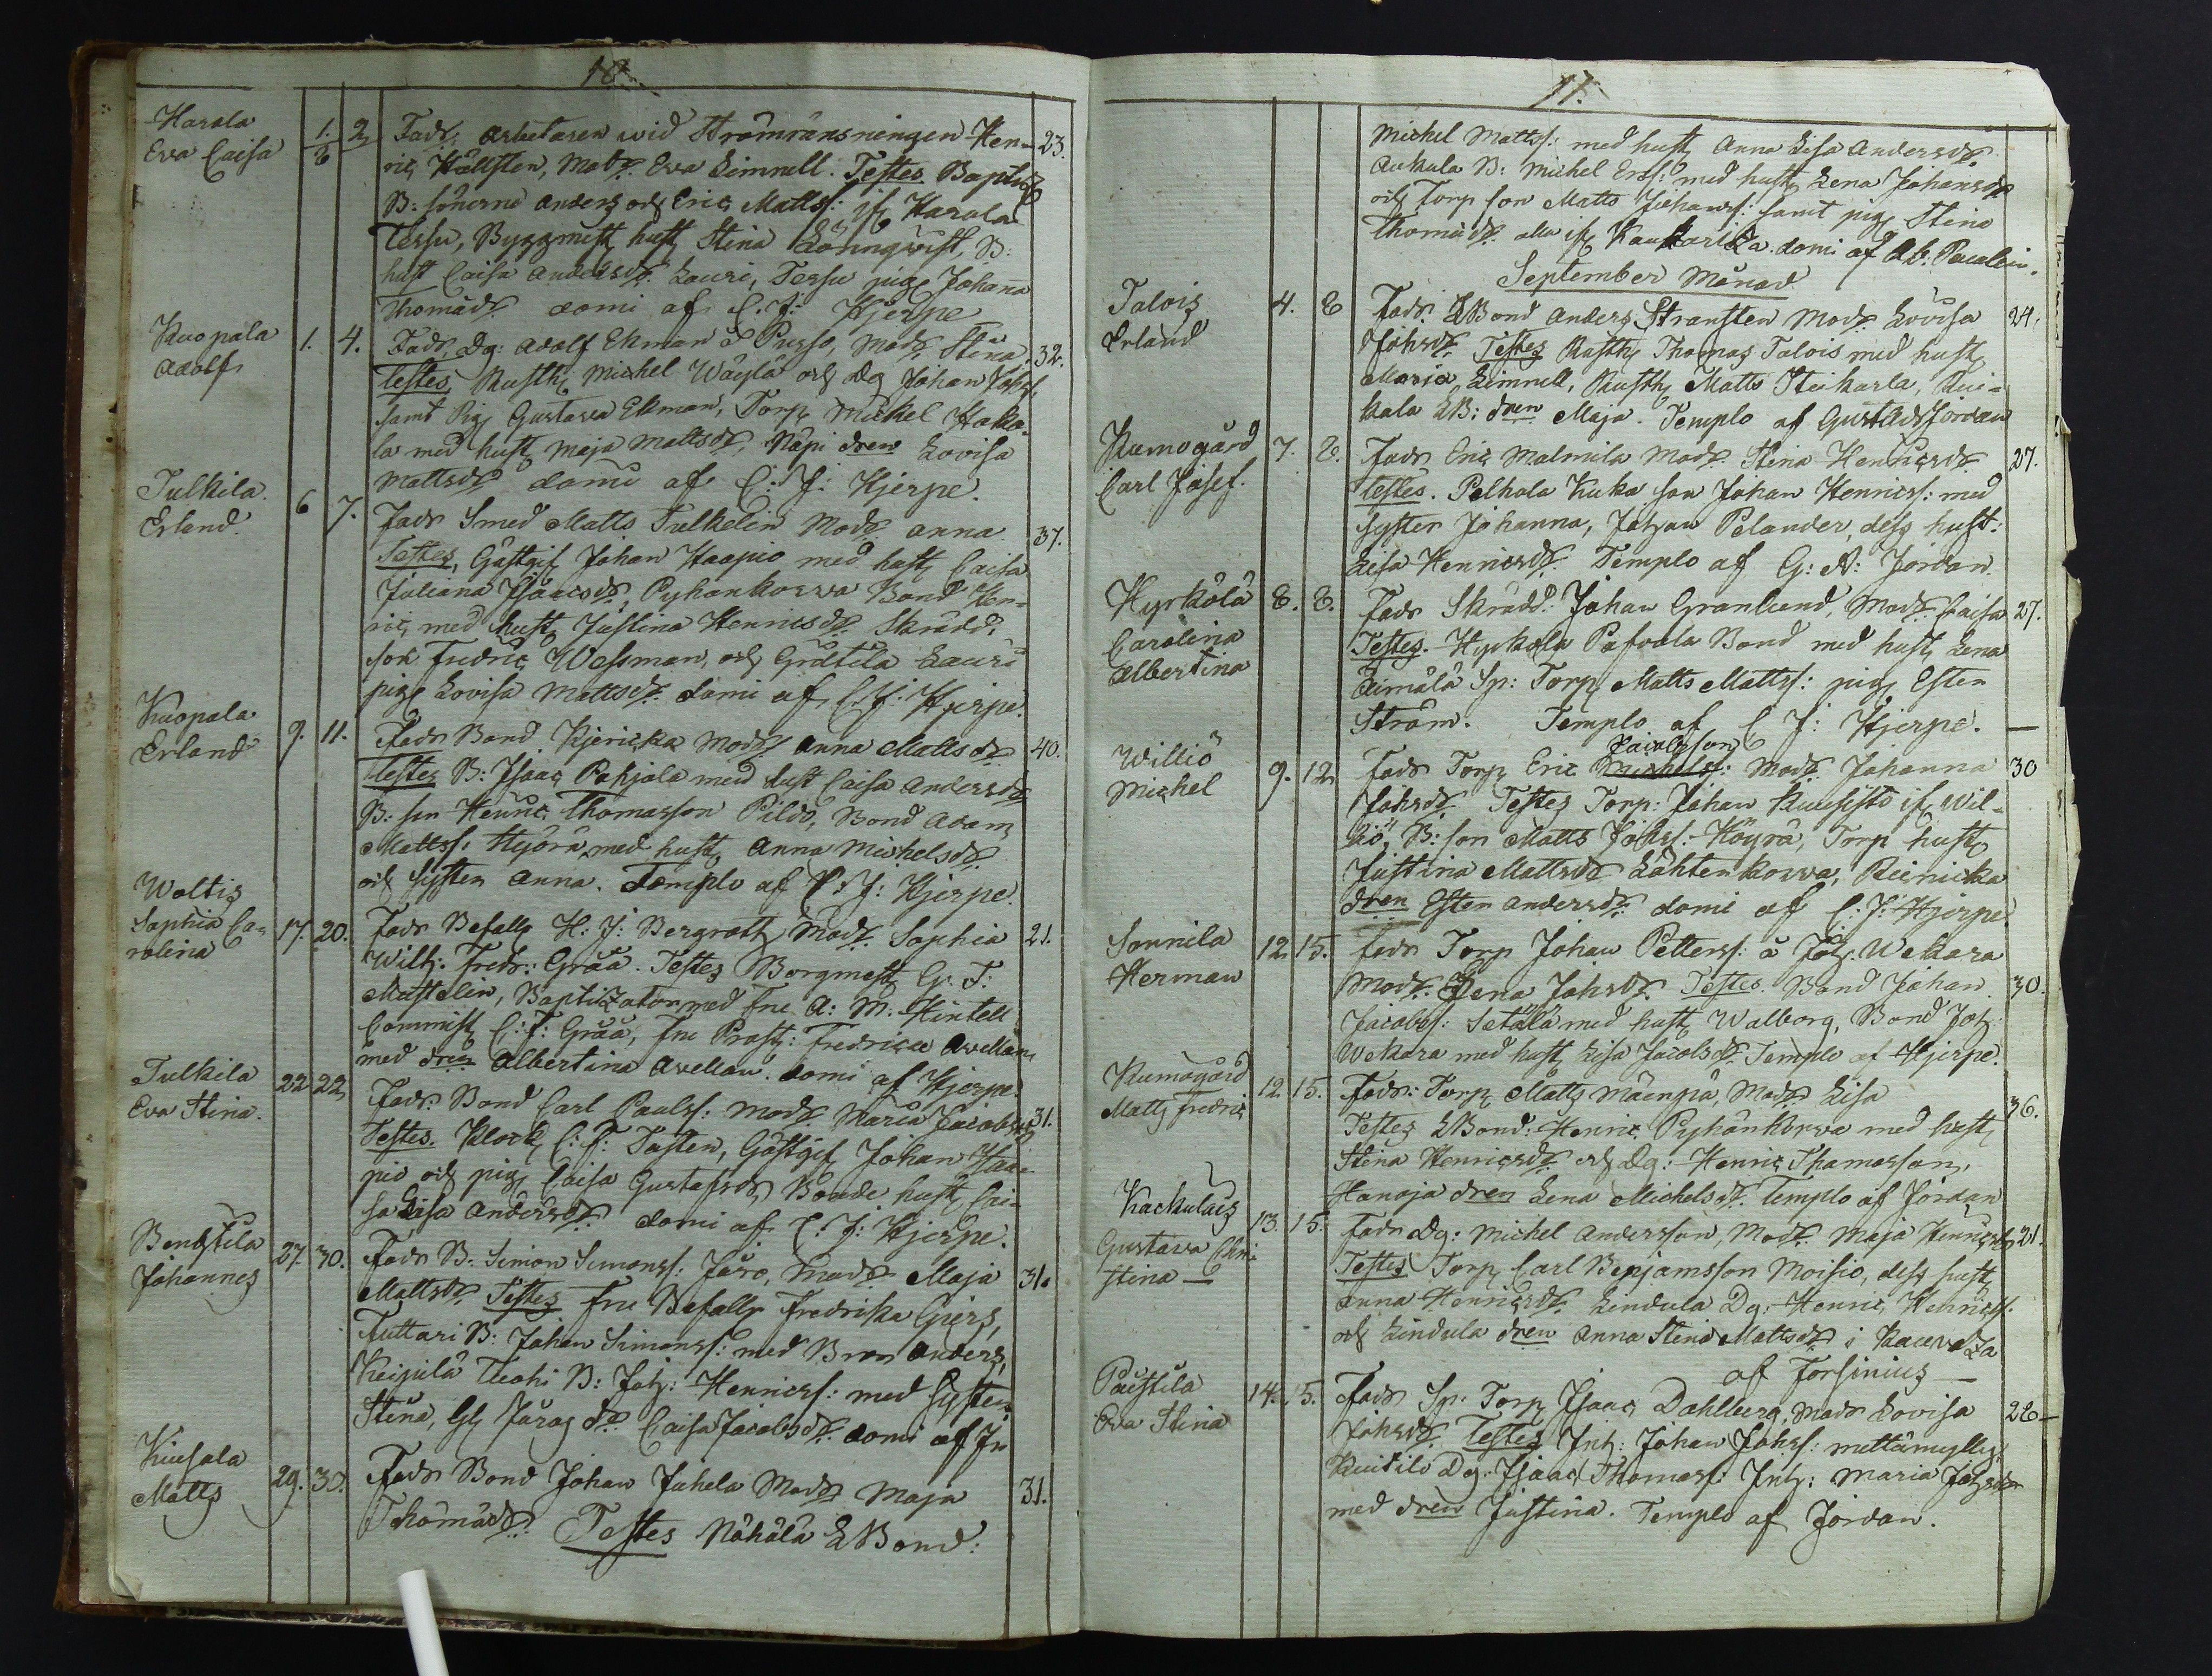 10.
Harola 1. 2 Fadr. Arbetaren wid Strömränsningen Hen- 23.
Eva Caisa 8 ric Hällsten, Modr. Eva Limnell. Testes Baptiz
B: sönerne Anders och Eric Mattss: if Harola
Tessu, Byggmest hust Stina Lönnqvist, B:
hust Caisa Andersdr. Lauri, Tessu pig Johanna
Thomädr. domi af C. J: Hjerpe
Kuopala 1. 4. Fadr. Dg: Adolf Ekman å Pusso, Modr. Stina. 32.
Adolf Testes Rusth. Michel Wäylä och Dg Johan Johss,
samt Pig Gustava Ekman, Torp. Michel Hako-
la med hust Maja Mattsdr. Näpi dren Lovisa
Mattsdr domi af C: J: Hjerpe.
Tulkila 6 7. Fadr Smed Matts Tulkelin Modr. Anna 37.
Erland. Testes, Gästgif Johan Haapio med hust Caisa
Juliana Isaacsdr. Pyhankorva Bond Hen-
ric med hust Justina Henricsdr. Skrädd.
son Fredric Wessman, och Grätila Lauri
pig Lovisa Mattsdr. domi af C. J: Hjerpe.
Kuopala 9. 11. Fadr Bond Kjericka Modr. Anna Mattsdr 40.
Erland Testes B: Isaac Pahjala med hust Caisa Andersdr
B: son Henric Thomasson Pildo, Bond Adam
Mattss: Hyörä med hust Anna Michelsdr.
och syster Anna. Templo af C: J: Hjerpe.
Waltis
Sophia Ca- 17. 20. Fadr Befallg H: J: Bergroth Modr. Sophia 21.
rolina Wilh: Fredr: Gråå. Testes Borgmest G: F:
Mustelin, Baptizator med fru A: M: Kintell
Commiss C: F: Gråå, fru Prost: Fredrica Avellan
med dren Albertina Avellan. domi af Hjerpe.
Tulkila 22 22 Fadr: Bond Carl Paulss: Modr. Maria Jacobsdr 31.
Eva Stina. Testes. Klock C: F: Tasten, Gästgif Johan Haa-
pio och pig Caisa Gustafsdr, Bonde hust Cai-
sa Lisa Andersdr. domi af C. J: Hjerpe.
Benstila 27. 30. Fadr B: Simon Simonss: Järo, Modr. Maja 31.
Johannes Mattsdr. Testes fru Befallg Fredrika Gjers,
Tuttari B: Johan Simonss: med Bror Anders,
Keijulä Teohi B: Joh: Henricss: med Syster
Stina, Gl Järag dr. Caisa Jacobsdr. domi af
Kiusala
Matts 29. 30. Fadr Bond Johan Juhela Modr Maja 31.
Thomädr. Testes Nähälä LBond:
11.
Michel Mattss: med hust Anna Lisa Andersdr.
Aukula B: Michel Erss: med hust Lena Johansdr
och Torp son Matts Johanss: samt pig Stina
Thomädr. alla if Kaukaritza. domi af Ad: Pacalein.
September Månad
Talois 4. 8 Fadr. LBond Anders Stransten Modr. Lovisa 24.
Erland Johsdr. Testes Rusth. Thomas Talois med hust
Maria Limnell, Rusth. Matts Steikarla, Kui-
kala LB: dren Maja. Templo af Gust Ad Jordan
Kumogård 7. 8. Fadr Eric Malmila Modr. Stina Henricsdr 27.
Carl Josef. Testes. Pelhola Kuka son Johan Henricss: med
syster Johanna, Johan Pelander, dess hust:
Lisa Henricsdr. Templo af G: A: Jordan.
Hyrkölä 8. 8. Fadr Skrädd: Johan Granlund, Modr. Caisa 27.
Carolina Testes. Hyrkola Pafvola Bond med hust Lena
Albertina Äimälä Sp: Torp Matts Mattss: pig Ester
Ström. Templo af C J: Hjerpe.
Williö Paulsson
Michel 9. 12 Fadr Torp. Eric Michelss: Modr. Johanna 30
Johsdr. Testes Torp: Johan Kuusisto if Wil-
liö, B: son Matts Johss: Höyrä, Torp hust
Justina Mattsdr Lähtenkorva, Reinicka
dren Ester Andersdr. domi af C: J: Hjerpe.
Sonnila 12 15. Fadr Torp Johan Petterss: å Joh Wekara
Herman Modr. Lena Johsdr. Testes Bond Johan 30.
Jacobss: Setälä med hust Walborg, Bond Joh:
Wekara med hust Lisa Jacobsdr. Templo af Hjerpe.
Kumogård 12 15. Fadr: Torp. Matts Mäenpä, Modr Lisa 36.
Matts Fredric Testes LBond: Henric Pyhänkorva med hust
Stina Henricsdr. och Dg: Henric Thomasson,
Hanoja dren Lena Michelsdr. Templo af Jordan
Kackulais 13. 15. Fadr Dg: Michel Andersson, Modr. Maja Henricsdr 21.
Gustava Chri Testes Torp Carl Benjamsson Moisio, dess hust
stina — Anna Henricsdr. Lindula Dg. Henric Henricss.
och Lindula dren Anna Stina Mattsdr. i Kauvatza
af Forsinius —
Paistila 14. 15. Fadr Sp. Torp Isaac Dahlberg, Modr Lovisa 28
Eva Stina Johsdr. Testes Inh: Johan Johss: mettämyllys
Kuitilo Dg: Isaac Thomass: Inh: Maria Johsdr
med dren Justina. Templo af Jordan.